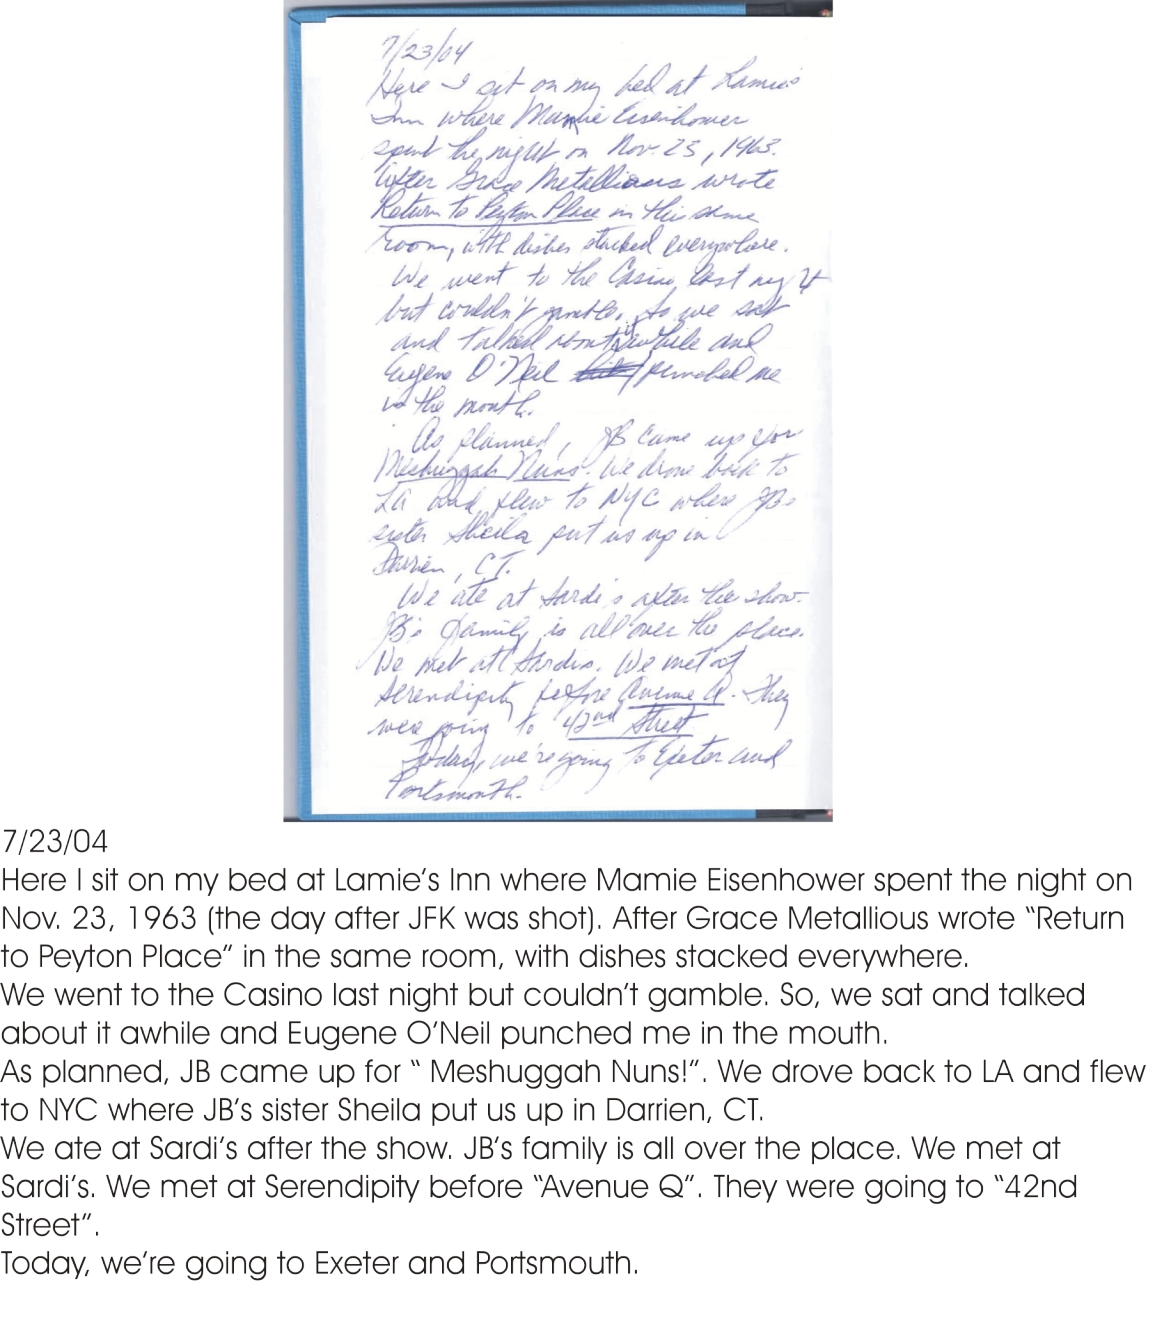 7/23/04
Here I sit on my bed at Lamie's
Inn where Mamie Eisenhower
spent the night on Nov. 23, 1963.
After Grace Metallious wrote
Return to Peyton Place in this same
room, with dishes stacked everywhere.
We went to the Casino last night
but couldn't gamble. So we sat
and talked about it awhile and
Eugene O'Neil punched me
in the mouth.
As planned, JB came up for
Meshuggah Nuns. We drove back to
LA and flew to NYC where JB's
sister Sheila put us up in
Darrien, CT.
We ate at Sardi's after the show.
JB's family is all over the place.
We met at Sardis. We met at
Serendipity before Avenue Q. They
were going to 42nd Street
Today, we're going to Exeter and
Portsmouth.
7/23/04
Here I sit on my bed at Lamie’s Inn where Mamie Eisenhower spent the night on
Nov. 23, 1963 (the day after JFK was shot). After Grace Metallious wrote “Return
to Peyton Place” in the same room, with dishes stacked everywhere.
We went to the Casino last night but couldn’t gamble. So, we sat and talked
about it awhile and Eugene O’Neil punched me in the mouth.
As planned, JB came up for “ Meshuggah Nuns!”. We drove back to LA and flew
to NYC where JB’s sister Sheila put us up in Darrien, CT.
We ate at Sardi’s after the show. JB’s family is all over the place. We met at
Sardi’s. We met at Serendipity before “Avenue Q”. They were going to “42nd
Street”.
Today, we’re going to Exeter and Portsmouth.